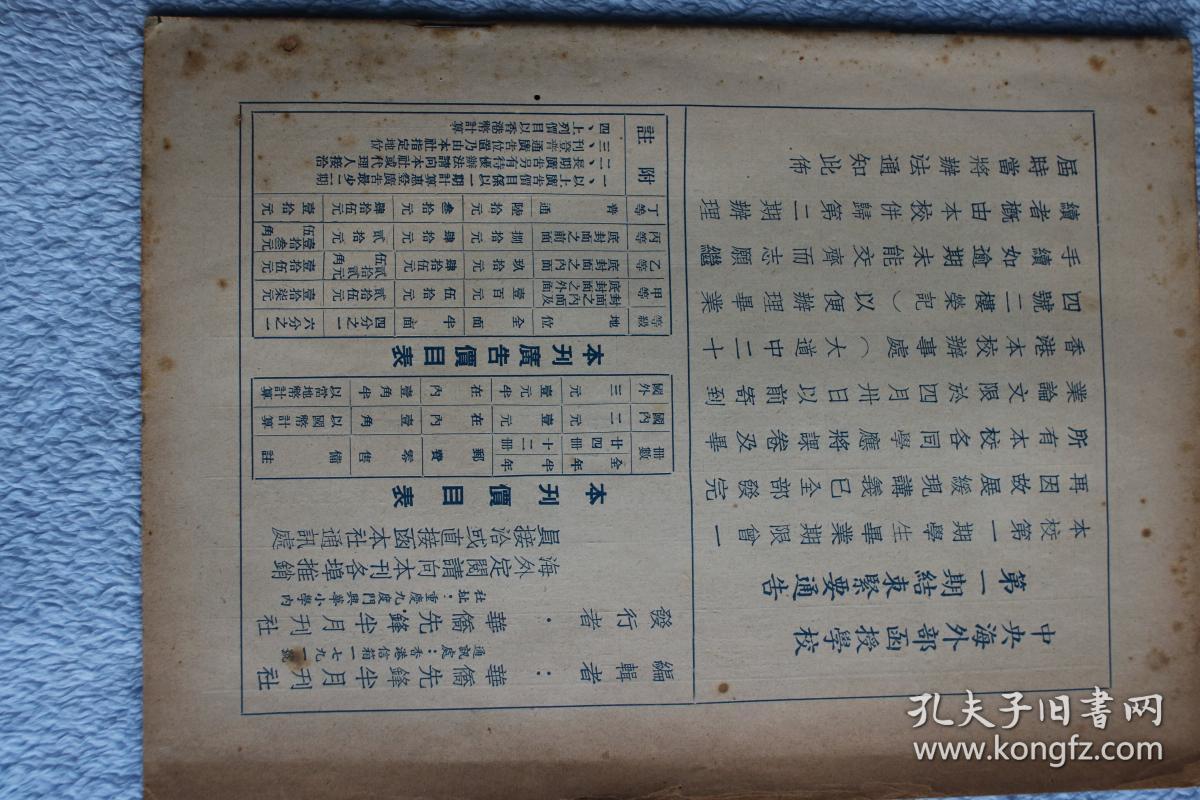 中央海外部函授學校
第一期結束緊要通告
本校第一期學生畢業期限曾一
再因故展緩現講義已全部發完
所有本校各同學應將課卷及畢
業論文限於四月卅日以前寄到
香港本校辦事處（大道中二十
四號二樓榮記）以便辦理畢業
手續如逾期未能交齊而志願繼
續者概由本校併歸第二期辦理
屆時當將辦法通知此佈
編輯者：華僑先鋒半月刊社
通訊處：香港信箱一七九一號
發行者．華僑先鋒半月刊社
社址：重慶九度門興華小學內
海外定閱請向本刊各埠推銷
員接洽或直接函本社通訊處
本刊價目表
冊數 全年廿四冊 半年十二冊 郵費 零售 備註
國內 二元 壹元 在內 壹角 以國幣計算
國外 三元 壹元半 在內 壹角半 以當地幣計算
本刊廣告價目表
等級 地位 全面 半面 四分之一 六分之一
甲等 封面之內面及底封面之外面 壹百元 伍拾元 貳拾伍元 壹拾柒元
乙等 底封面之內面 玖拾元 肆拾伍元 貳拾貳元伍角 壹拾伍元
丙等 底封面之前面 捌拾元 肆拾元 貳拾元 壹拾叁元伍角
丁等 普通 陸拾元 叁拾元 肆拾伍元 壹拾元
附註
一、以上廣告價目係以一期計算惠登廣告最少一期
二、長期廣告另有優待辦法請向本社或代理人接洽
三、刊登普通廣告位置乃由本社指定地位
四、上列價目以香港幣計算
孔夫子旧书网
www.kongfz.com